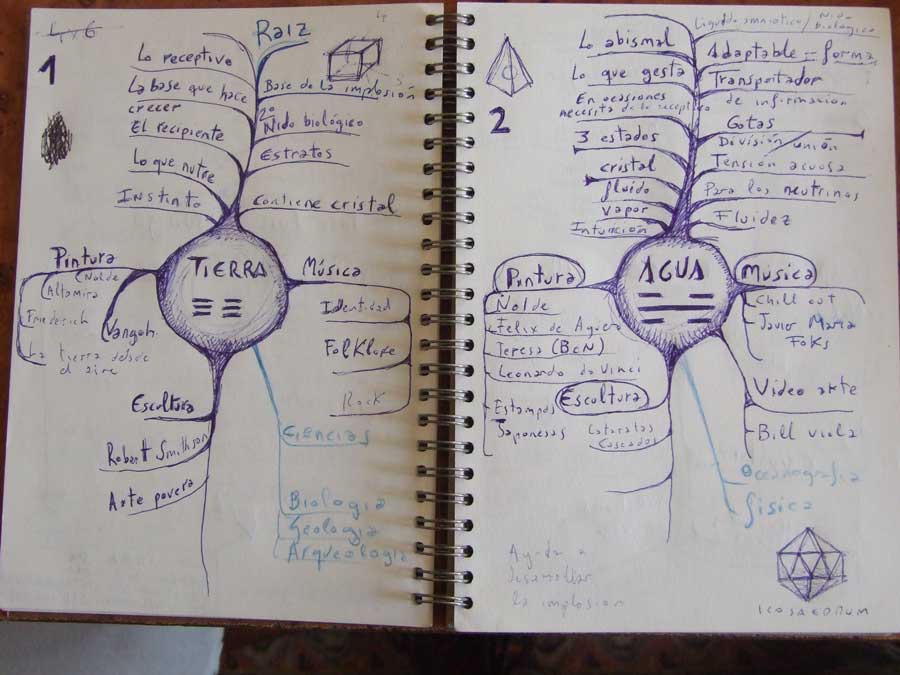 1
Raiz
Lo receptivo
La base que hace
crecer
El recipiente
Lo que nutre
Instinto
Base de la implosión
Nido biológico
Estratos
Contiene cristal
TIERRA
Pintura
Nolde
Altamira
Friederich
Vangoh
La tierra desde
el aire
Música
Identidad
Folklore
Rock
Escultura
Robert Smithson
Arte povera
Ciencias
Biologia
Geologia
Arqueologia
2
Lo abismal
Lo que gesta
En ocasiones
necesita de lo receptivo
3 estados
cristal
fluido
vapor
Intuición
Liquido amniótico/Nido
biologico
Adaptable = forma
Transportador
de información
Gotas
División unión
Tensión acuosa
Para los neutrinos
Fluidez
AGUA
Pintura
Nolde
Felix de Aguero
Teresa (BCN)
Leonardo da Vinci
Estampas
Japonesas
Escultura
Cataratas
Cascadas
Música
Chill out
Javier Maria
Folks
Video arte
Bill viola
Oceanografia
fisica
Ayuda a
desarrollar
la implosion
ICOSAEDRUM